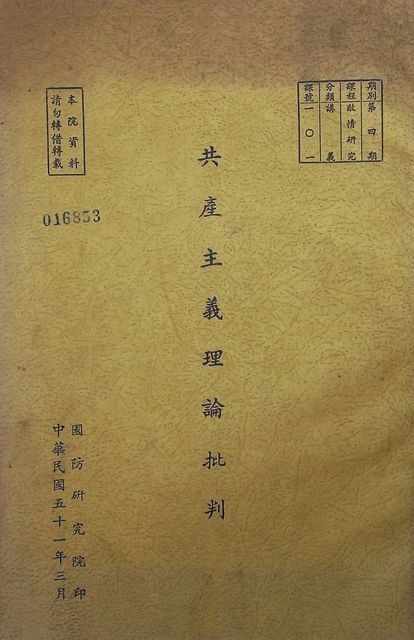 期別 第四期
課程 敵情研究
分類 講義
課號 一〇一
本院資料
請勿轉借轉載
016853
共產主義理論批判
國防研究院印
中華民國五十一年三月